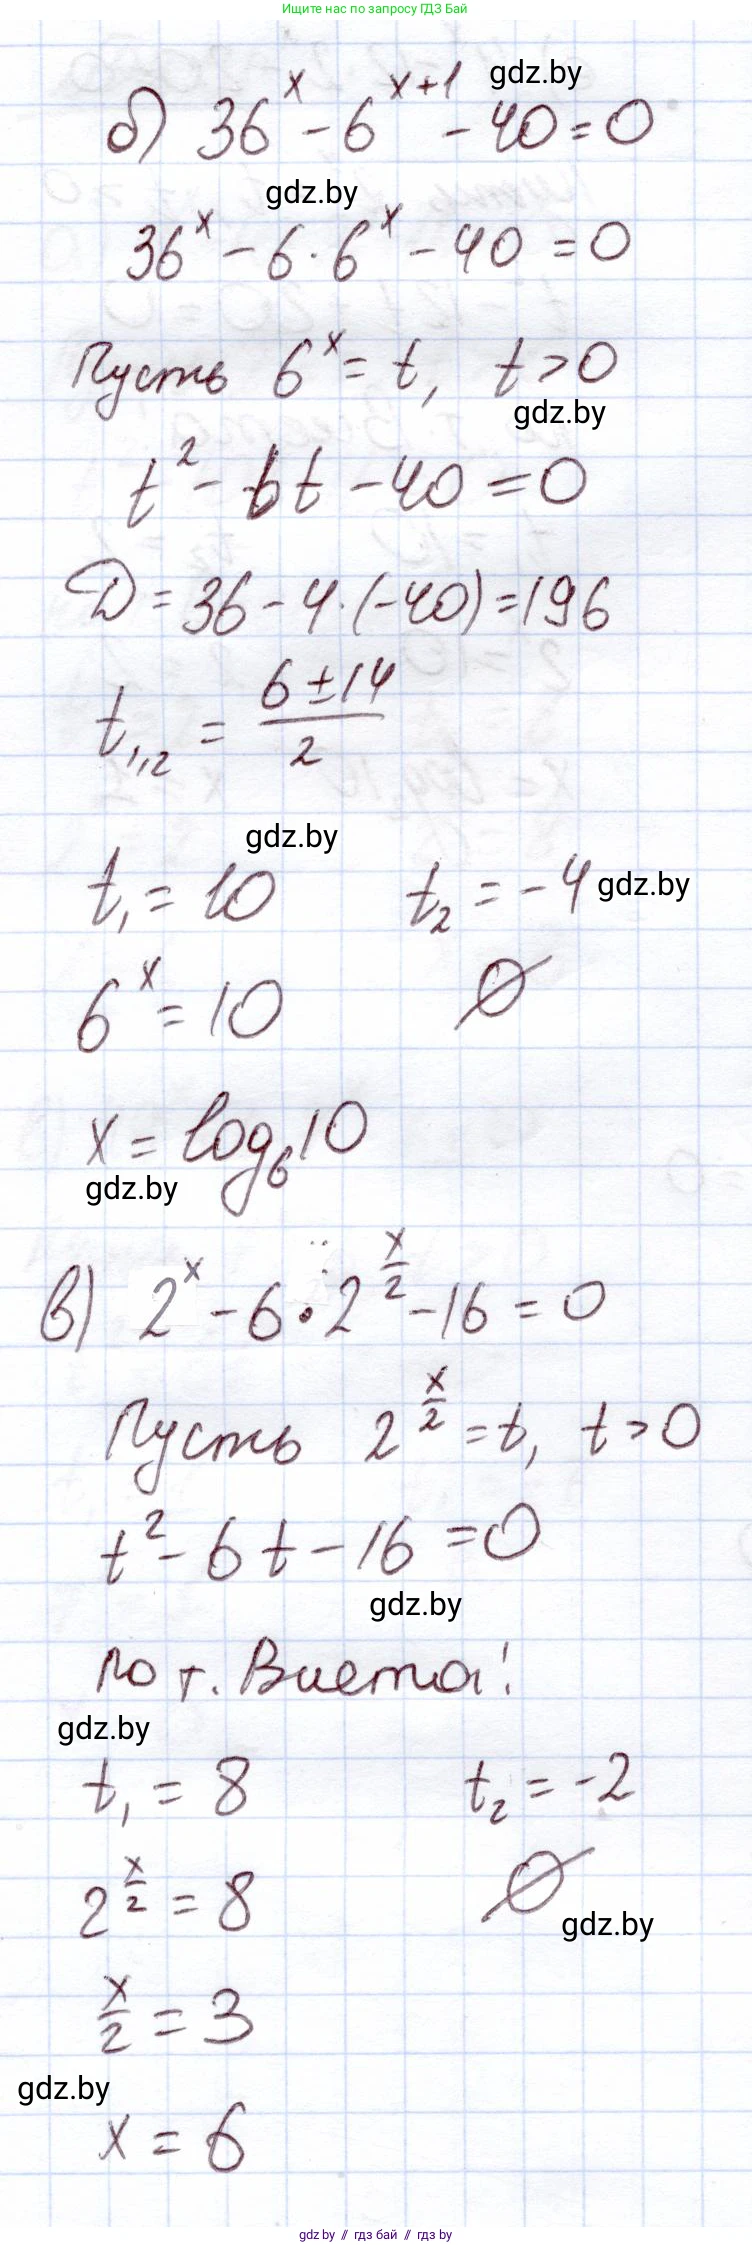 Ищите нас по запросу ГДЗ Бай
б) 36^x - 6^{x+1} - 40 = 0
gdz.by
gdz.by
36^x - 6 · 6^x - 40 = 0
Пусть 6^x = t, t > 0
gdz.by
t^2 - 6t - 40 = 0
D = 36 - 4 · (-40) = 196
t_{1,2} = \frac{6 ± 14}{2}
gdz.by
t_1 = 10 t_2 = -4 gdz.by
6^x = 10 ∅
x = log_6 10
gdz.by
в) 2^x - 6 · 2^{\frac{x}{2}} - 16 = 0
Пусть 2^{\frac{x}{2}} = t, t > 0
t^2 - 6t - 16 = 0
gdz.by
по т. Виета:
gdz.by
t_1 = 8 t_2 = -2
2^{\frac{x}{2}} = 8 ∅
gdz.by
\frac{x}{2} = 3
gdz.by
x = 6
gdz.by // гдз бай // гдз by